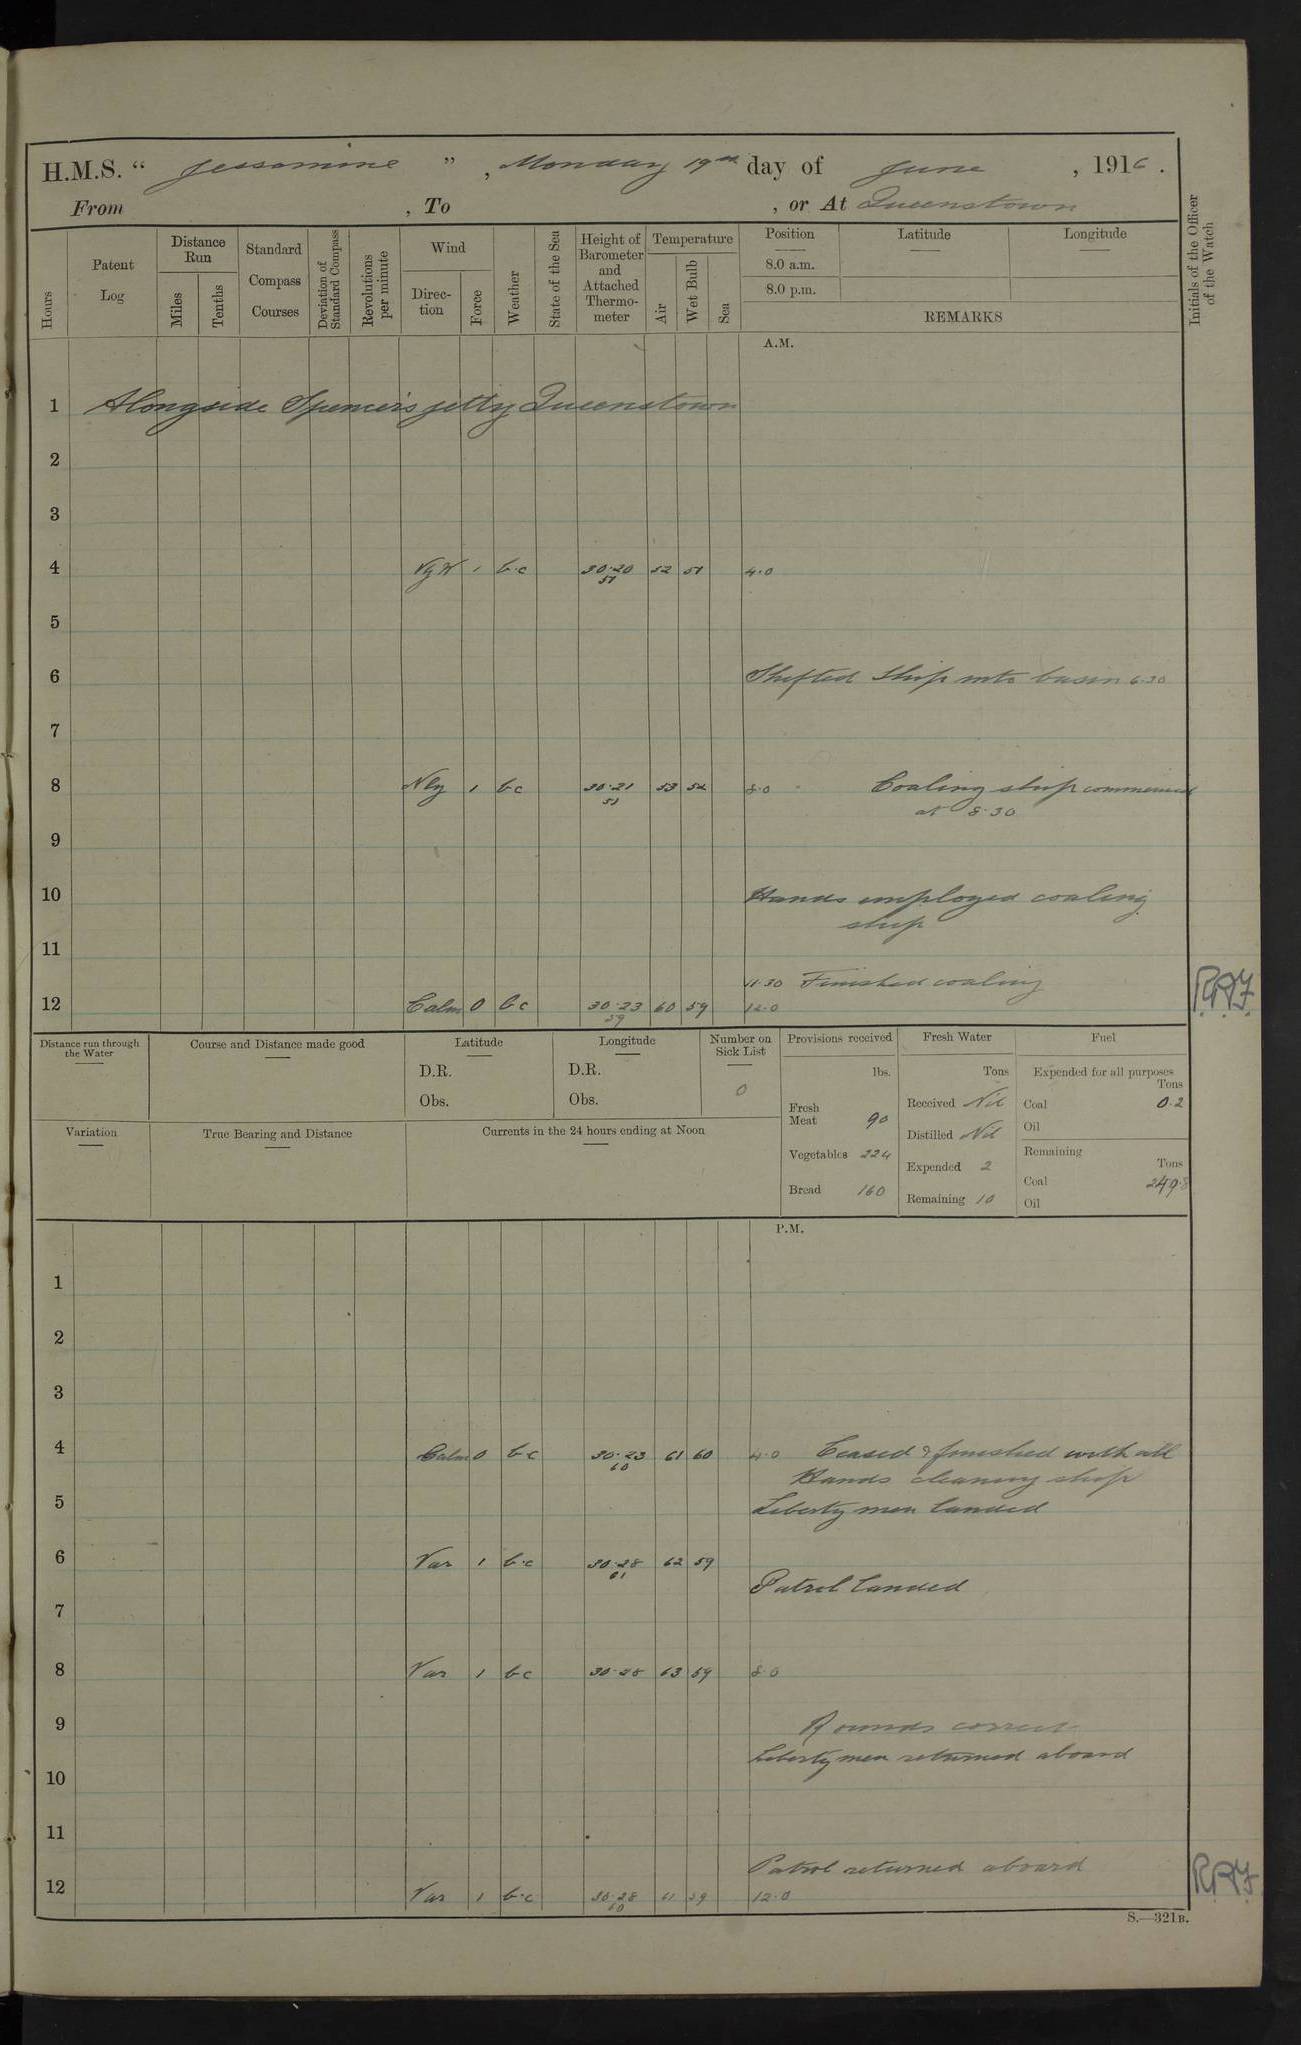 H.M.S. " Jessamine ", Monday 19th day of June, 1916.
From , To , or At Queenstown
Hours
Patent Log
Distance Run
Miles
Tenths
Standard Compass Courses
Deviation of Standard Compass
Revolutions per minute
Wind
Direc-tion
Force
Weather
State of the Sea
Height of Barometer and Attached Thermo-meter
Temperature
Air
Wet Bulb
Sea
Position
8.0 a.m.
8.0 p.m.
Latitude
Longitude
REMARKS
Initials of the Officer of the Watch
A.M.
1 Alongside Spencers jetty Queenstown
2
3
4 1 b.c 30.20 52 51 4.0
51
5
6 Shifted Ship into basin 6.30
7
8 Nly 1 bc 30.21 53 52 8.0 Coaling ship commenced
51 at 8.30
9
10 Hands employed coaling
ship
11
11.30 Finished coaling
12 Calm 0 bc 30.23 60 59 12.0
59
Distance run through the Water
Course and Distance made good
Latitude
D.R.
Obs.
Longitude
D.R.
Obs.
Number on Sick List
0
Provisions received
lbs.
Fresh Meat 90
Vegetables 224
Bread 160
Fresh Water
Tons
Received Nil
Distilled Nil
Expended 2
Remaining 10
Fuel
Expended for all purposes
Tons
Coal 0.2
Oil
Remaining
Tons
Coal 249.8
Oil
Variation
True Bearing and Distance
Currents in the 24 hours ending at Noon
P.M.
1
2
3
4 Calm 0 bc 30.23 61 60 4.0 Ceased & finished with all
60 Hands cleaning ship
5 Liberty men landed
6 Var 1 b.c 30.28 62 59
61 Patrol landed
7
8 Var 1 bc 30.28 63 59 8.0
9 Rounds correct
Liberty men returned aboard
10
11
Patrol returned aboard
12 Var 1 b.c 30.28 61 59 12.0
60
S.—321B.